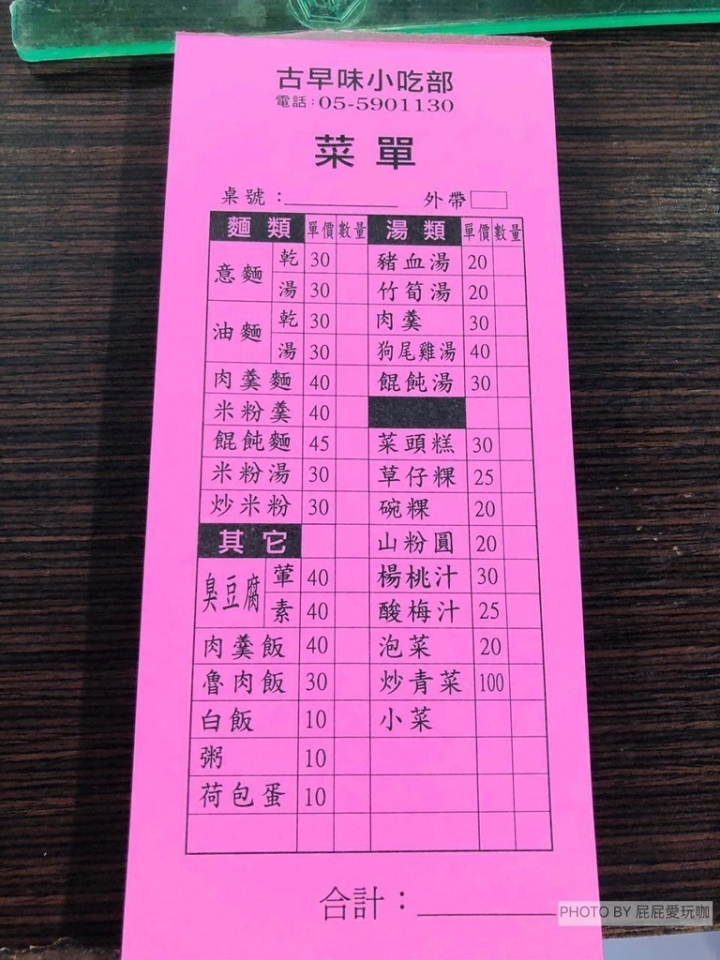 古早味小吃部
電話：05-5901130
菜單
桌號： 外帶
麵類 單價 數量 湯類 單價 數量
意麵 乾 30 豬血湯 20
湯 30 竹筍湯 20
油麵 乾 30 肉羹 30
湯 30 狗尾雞湯 40
肉羹麵 40 餛飩湯 30
米粉羹 40
餛飩麵 45 菜頭糕 30
米粉湯 30 草仔粿 25
炒米粉 30 碗粿 20
其它 山粉圓 20
臭豆腐 葷 40 楊桃汁 30
素 40 酸梅汁 25
肉羹飯 40 泡菜 20
魯肉飯 30 炒青菜 100
白飯 10 小菜
粥 10
荷包蛋 10
合計：
PHOTO BY 屁屁愛玩咖